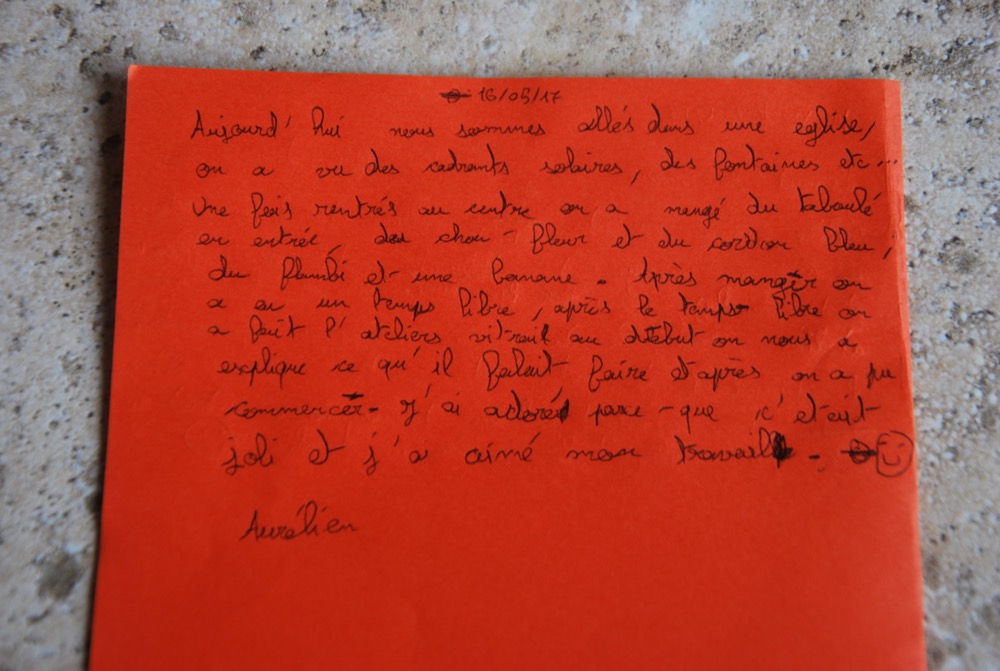 16/05/17
Aujourd'hui nous sommes allés dans une eglise,
on a vu des cadrants solaires, des fontaines etc...
Une fois rentrés au centre on a mangé du taboulé
en entrée, du chou-fleur et du cordon bleu,
du flambi et une banane. Après manger on
a eu un temps libre, après le temps libre on
a fait l'ateliers vitrail au début on nous a
explique ce qu'il falait faire et après on a pu
commencer. J'ai adoré parce-que c'etait
joli et j'a aimé mon travail.
Aurélien